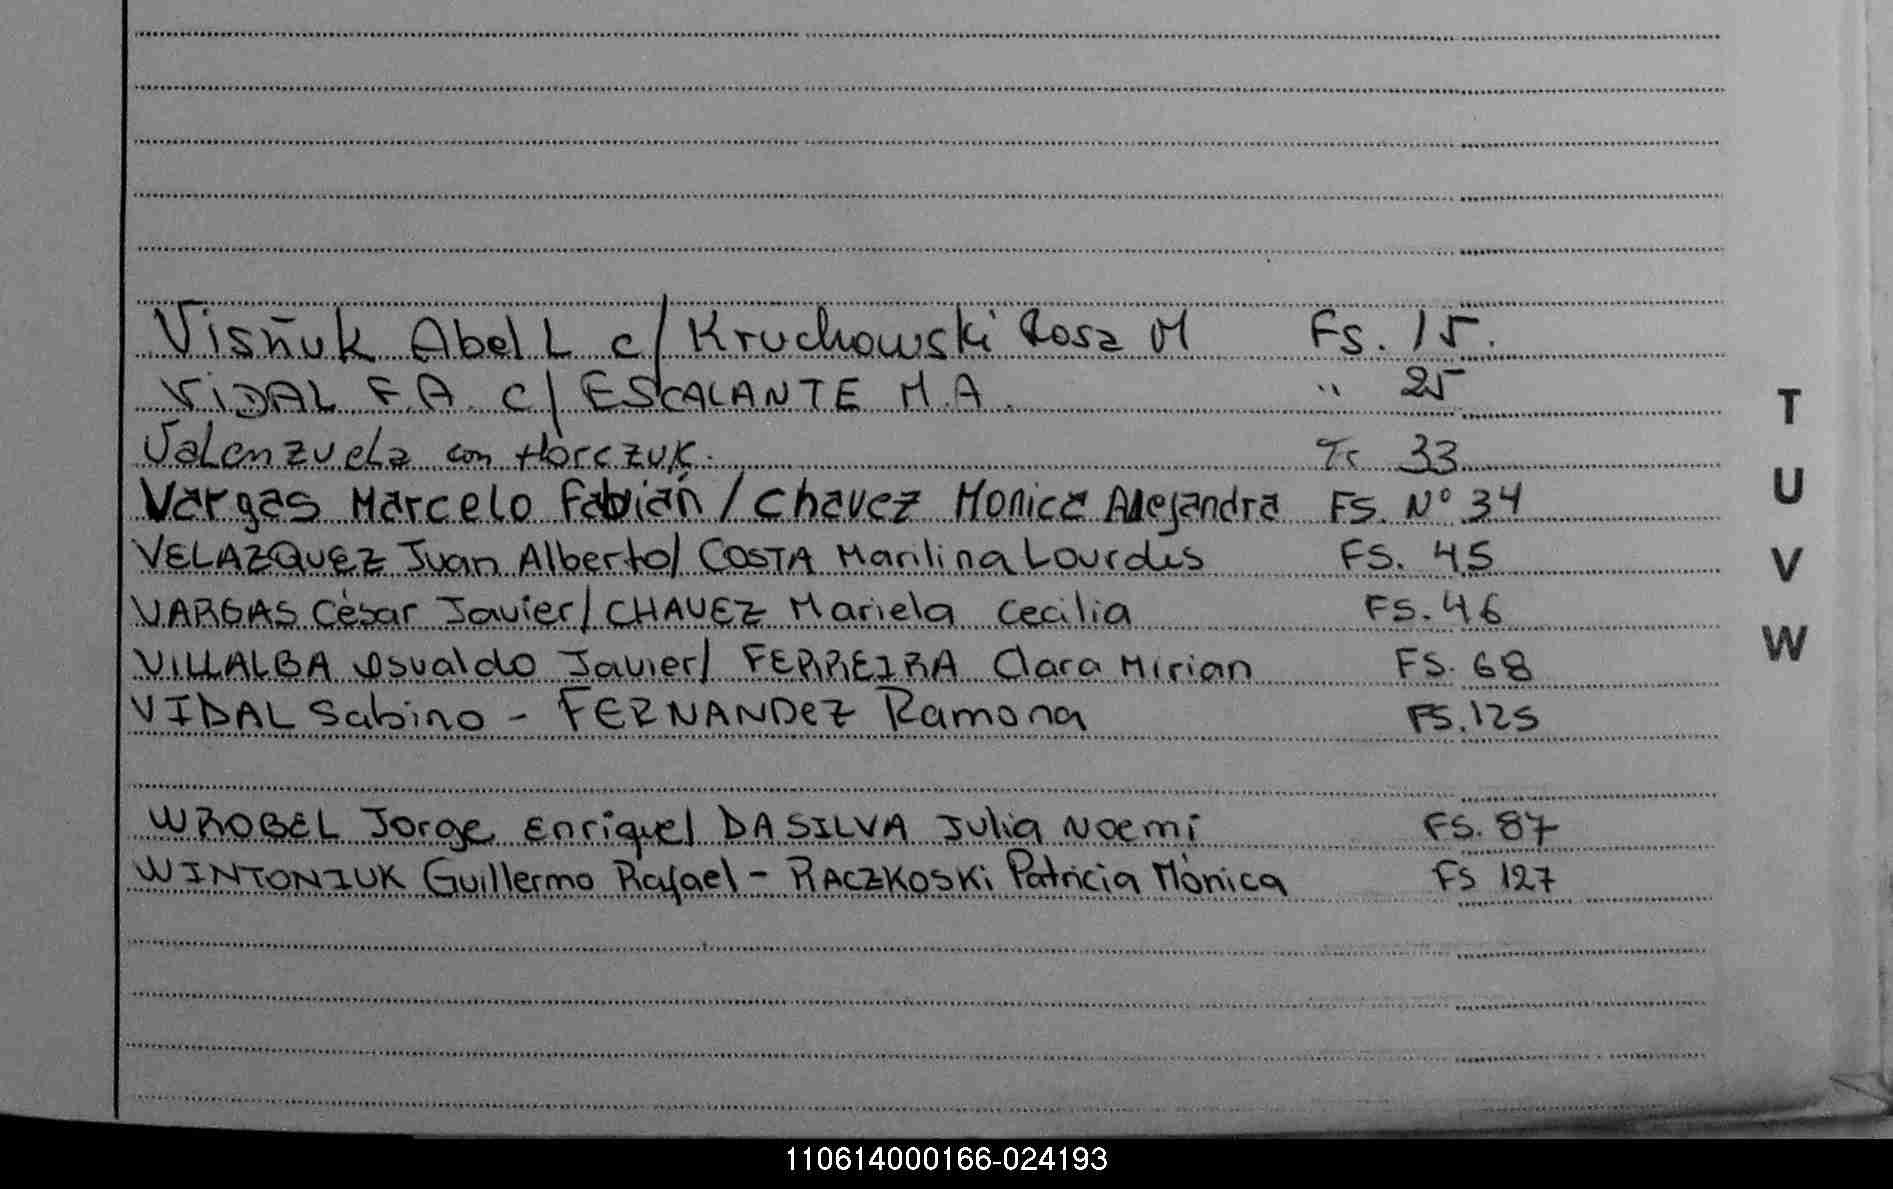 Visñuk Abel L c/ Kruchowski Rosa M Fs. 15.
VIDAL F.A. c/ ESCALANTE M.A. " 25
Valenzuela con Horczuk. Fs 33
Vargas Marcelo Fabián / Chavez Monica Alejandra FS. Nº 34
VELAZQUEZ Juan Alberto/ COSTA Marilina Lourdes FS. 45
VARGAS César Javier/ CHAVEZ Mariela Cecilia FS. 46
VILLALBA Osvaldo Javier/ FERREIRA Clara Mirian FS. 68
VIDAL Sabino - FERNANDEZ Ramona FS. 125
WROBEL Jorge Enrique/ DA SILVA Julia Noemí FS. 87
WINTONIUK Guillermo Rafael - RACZKOSKi Patricia Mónica FS 127
T
U
V
W
110614000166-024193